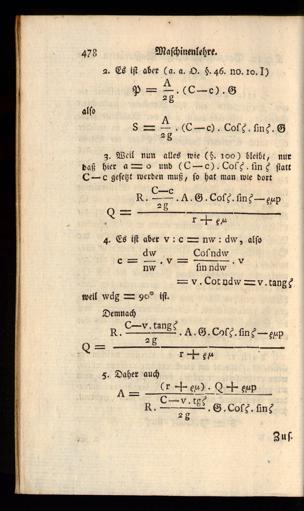 478 Maschinenlehre.
2. Es ist aber (a. a. O. §. 46. no. 10. I)
𝔓 = A/2g . (C—c) . 𝔊
also
S = A/2g . (C—c) . Cos ζ . sin ζ . 𝔊
3. Weil nun alles wie (§. 100) bleibt, nur
daß hier a = o und (C—c) . Cos ζ . sin ζ statt
C—c gesetzt werden muß, so hat man wie dort
Q = (R . (C—c)/2g . A . 𝔊 . Cos ζ . sin ζ — ρμp)/(r + ρμ)
4. Es ist aber v : c = nw : dw, also
c = dw/nw . v = Cos ndw/sin ndw . v
= v . Cot ndw = v . tang ζ
weil wdg = 90° ist.
Demnach
Q = (R . (C—v . tang ζ)/2g . A . 𝔊 . Cos ζ . sin ζ — ρμp)/(r + ρμ)
5. Daher auch
A = ((r + ρμ) . Q + ρμp)/(R . (C—v . tg ζ)/2g . 𝔊 . Cos ζ . sin ζ)
Zus.